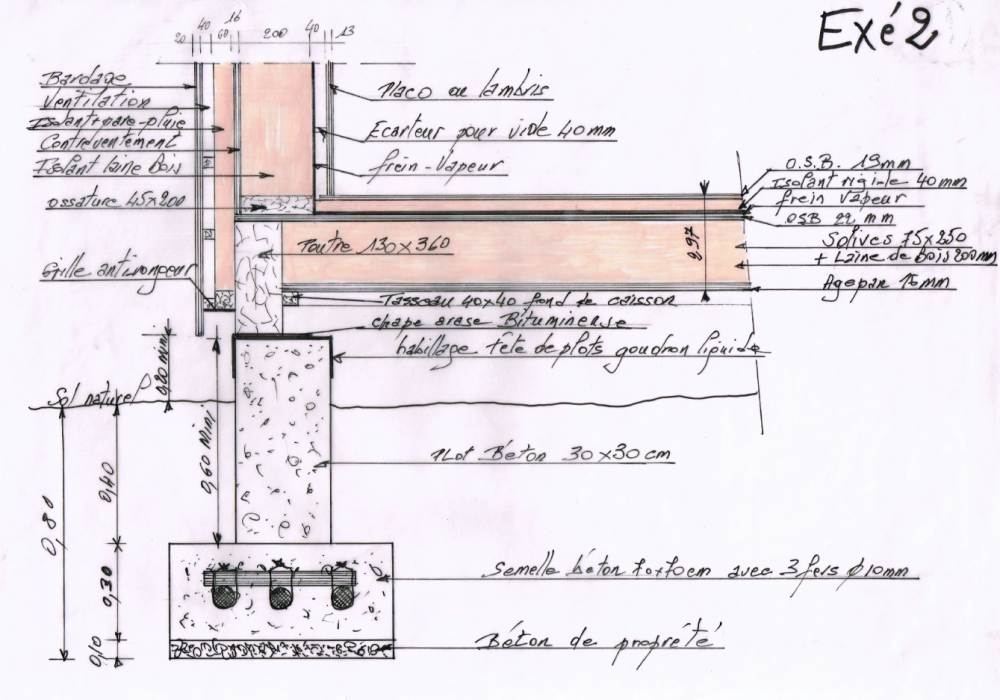 Exé 2
20 40 60 16 200 40 13
Bardage
Ventilation
Isolant+pare-pluie
Contreventement
Isolant laine bois
ossature 45x200
Grille antirongeur
Placo ou lambris
Ecarteur pour vide 40mm
frein-Vapeur
O.S.B. 19mm
Isolant rigide 40mm
frein vapeur
OSB 22 mm
Solives 75x250
+ Laine de bois 200mm
Agepan 16mm
Poutre 130x360
297
Tasseau 40x40 fond de caisson
chape arase Bitumineuse
habillage tête de plots goudron liquide
0,20 mini
Sol naturel
0,60 Mini
0,40
0,80
Plot Béton 30x30 cm
0,30
Semelle béton 70x70cm avec 3 fers Ø 10mm
0,10
Béton de propreté